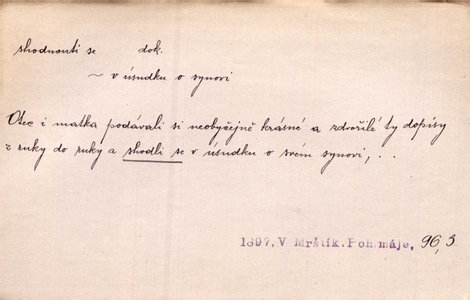 shodnouti se dok.
~ v úsudku o synovi
Otec i matka podávali si neobyčejně krásné a zdvořilé ty dopisy
z ruky do ruky a shodli se v úsudku o svém synovi, . .
1897, V Mrštík. Poh. máje, 96, 3